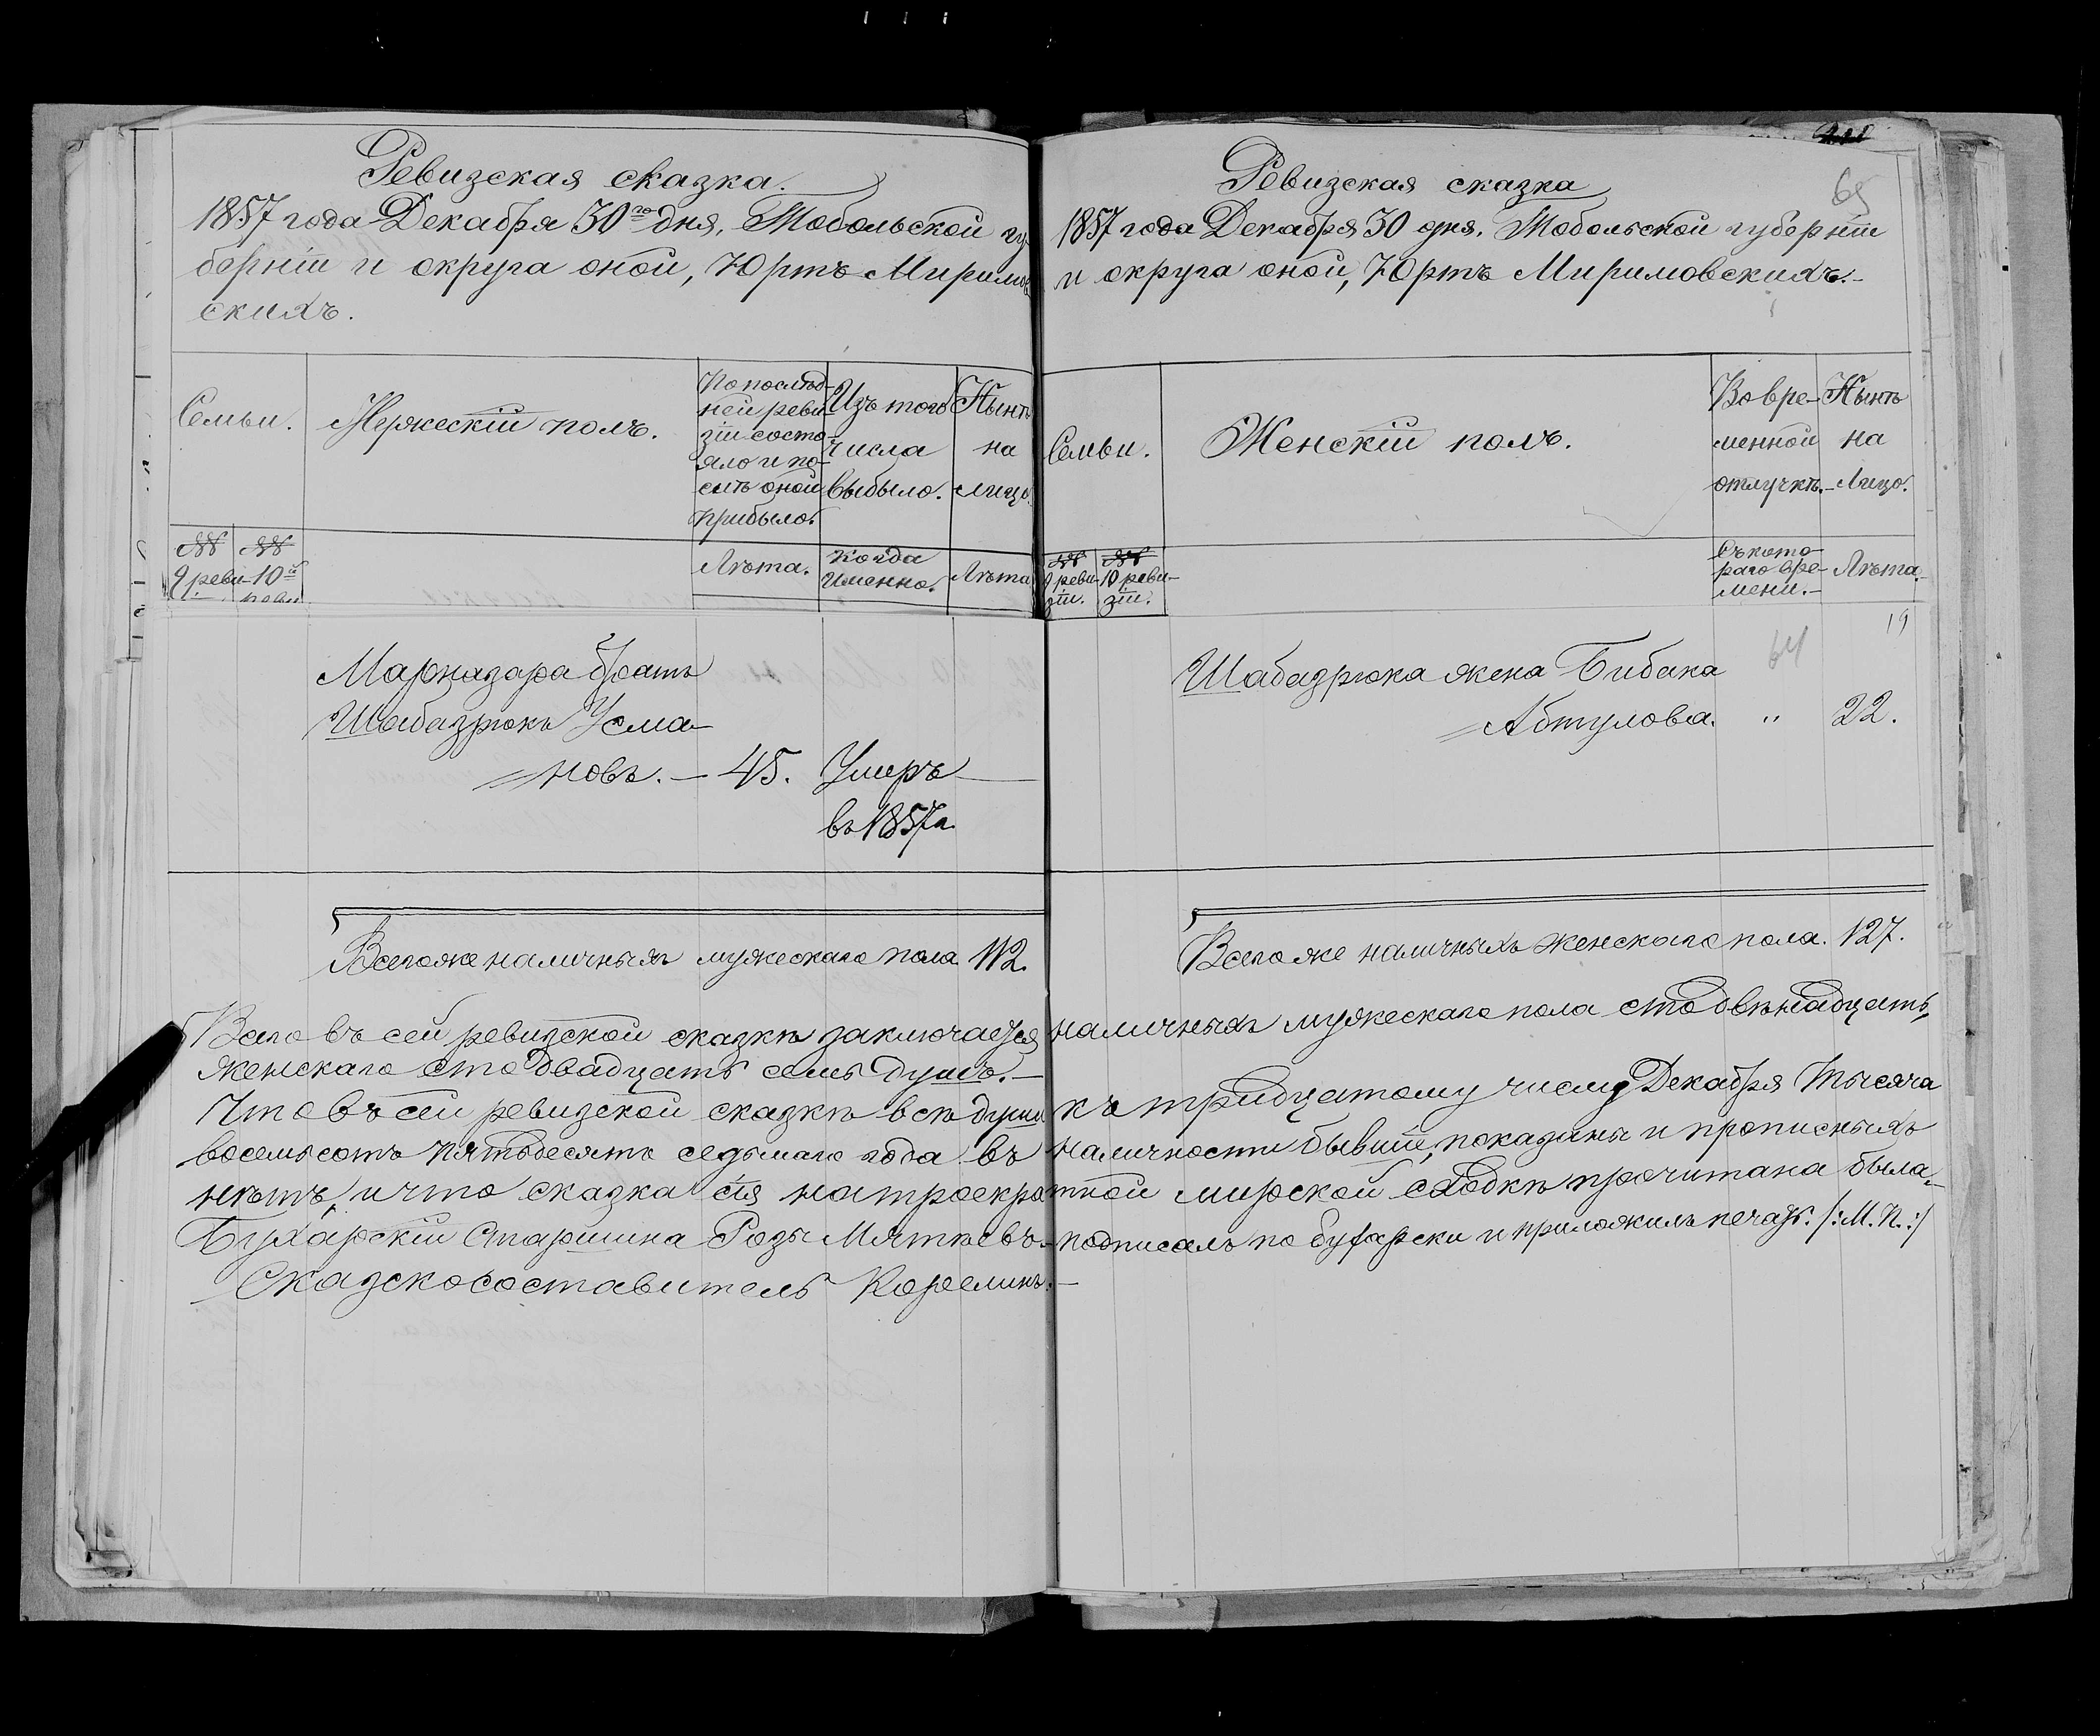 Ревизская сказка.
1857 года Декабря 30го дня, Тобольской гу-
берніи и округа оной, Юртъ Миримов
скихъ.
Семьи.
Мужескій полъ.
По послѣд-
ней реви-
зіи состо-
яло и по-
слѣ оной
прибыло.
Изъ того
числа
выбыло.
Нынѣ
на
лицо
№№
9 реви-
№№
10й
реви
Лѣта.
Когда
именно.
Лѣта
Марназара братъ
Шабазрюкъ Усма-
новъ. — 45. Умеръ
въ 1857 г.
Всего же наличныхъ мужескаго пола 112.
Ревизская сказка
65
1857 года Декабря 30 дня, Тобольской губерніи
и округа оной, Юртъ Миримовскихъ.-
Семьи.
Женскій полъ.
Во вре-
менной
отлучкѣ.-
Нынѣ
на
Лицо.
№№
9 реви-
зіи.
№№
10 реви-
зіи.
Съ кото-
раго вре-
мени.-
Лѣта.
19
64
Шабазрюка жена Бибака
Абтулова. " 22.
Всего же наличныхъ женскаго пола. 127.
Всего въ сей ревизской сказкѣ заключается наличныхъ мужескаго пола сто двѣнадцать,
женскаго сто двадцать семь душъ.-
Что въ сей ревизской сказкѣ всѣ души къ тридцатому числу Декабря тысяча
восемьсотъ пятьдесятъ седьмаго года въ наличности бывшіе, показаны и прописныхъ
нѣтъ, и что сказка сія на троекратной мирской сходкѣ прочитана была.-
Бухарскій Старшина Розы Мяткевъ.- подписалъ по бухарски и приложилъ печать. /:М. П.:/
Сказкосоставитель Корелинъ.-